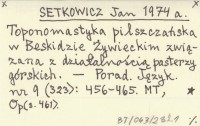 SETKOWICZ Jan 1974 a.
Toponomastyka pilszczańska
w Beskidzie Żywieckim zwią-
zana z działalnością pasterzy
górskich. — Porad. Język.
nr 9 (323): 456-465. MT,
Op(s. 461).